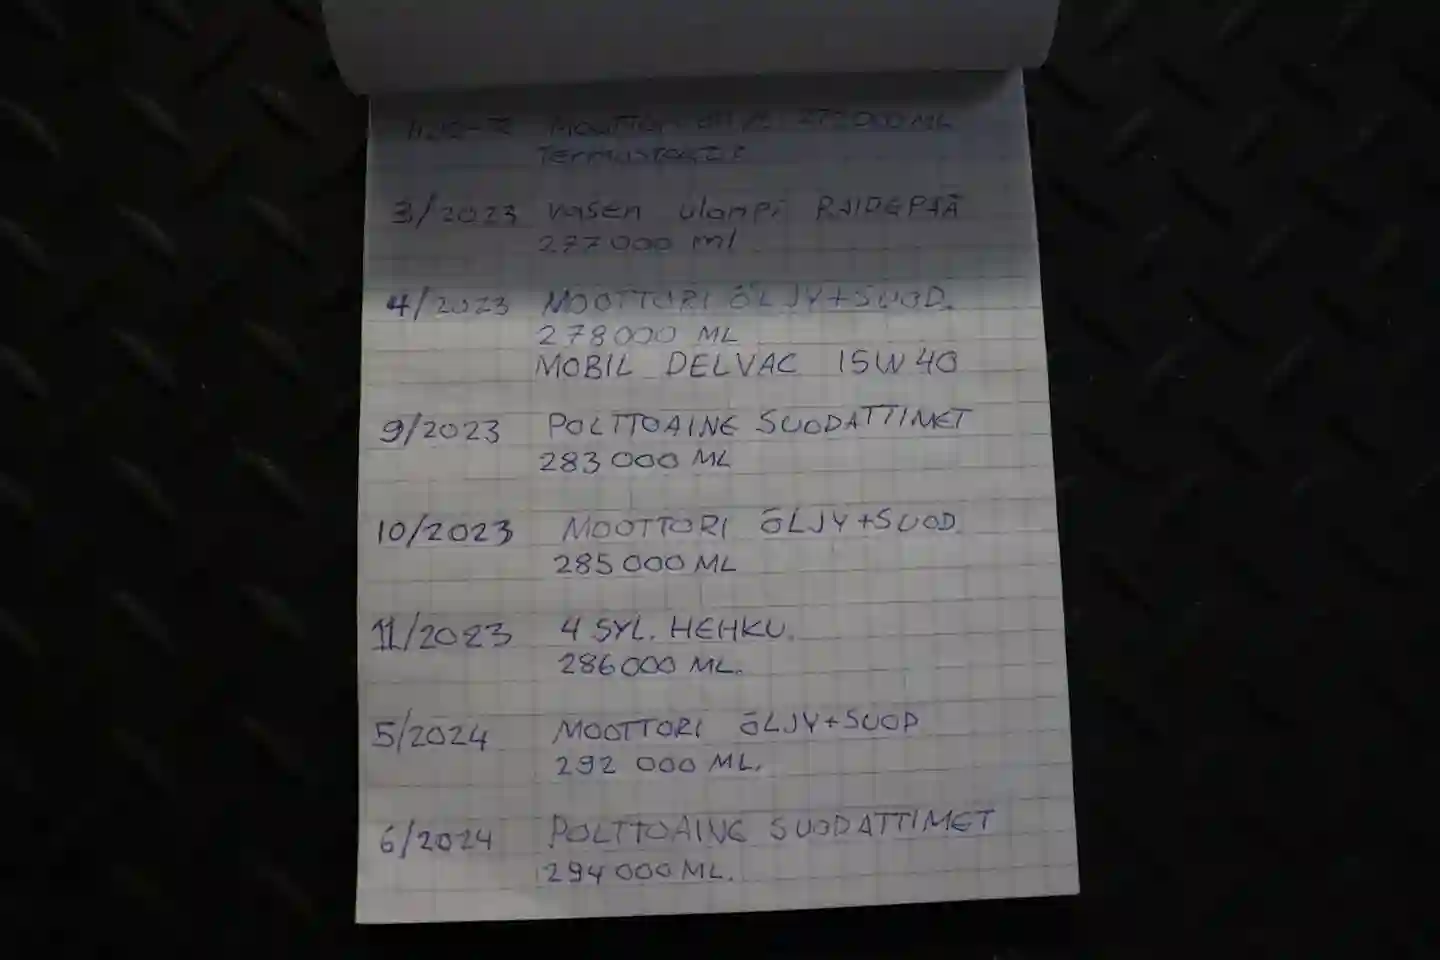 MOOTTORI 272000 ML
3/2023 Vasen ulompi RAIDEPÄÄ
277000 ml
4/2023 MOOTTORI ÖLJY+SUOD.
278000 ML
MOBIL DELVAC 15W40
9/2023 POLTTOAINE SUODATTIMET
283 000 ML
10/2023 MOOTTORI ÖLJY+SUOD.
285000 ML
11/2023 4 SYL. HEHKU.
286000 ML.
5/2024 MOOTTORI ÖLJY+SUOD
292 000 ML.
6/2024 POLTTOAINE SUODATTIMET
294 000 ML.